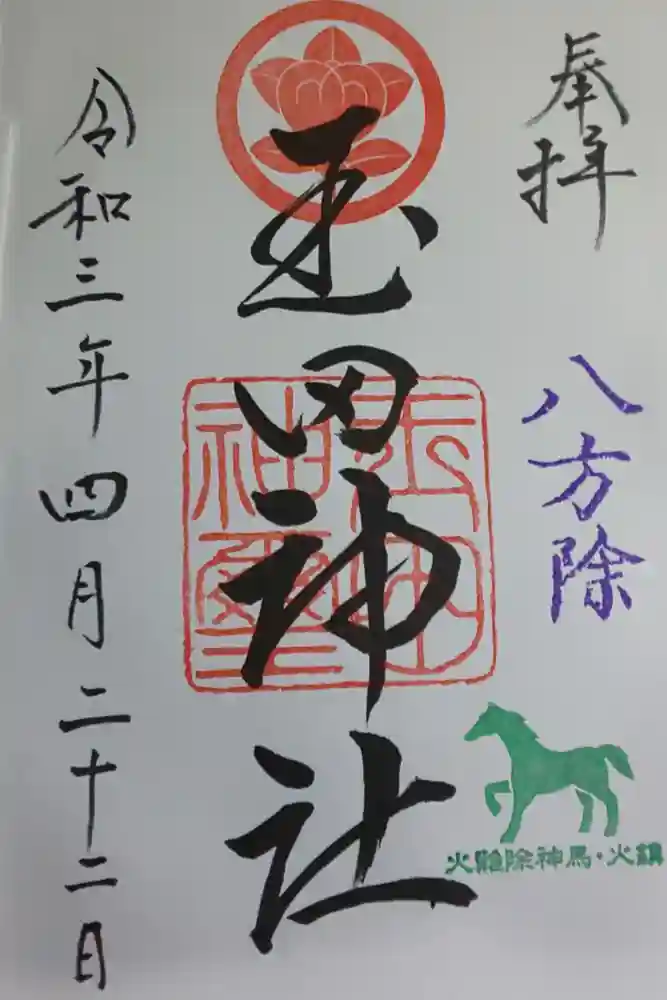 奉拝
八方除
玉田神社
令和三年四月二十二日
火難除神馬・火鎮